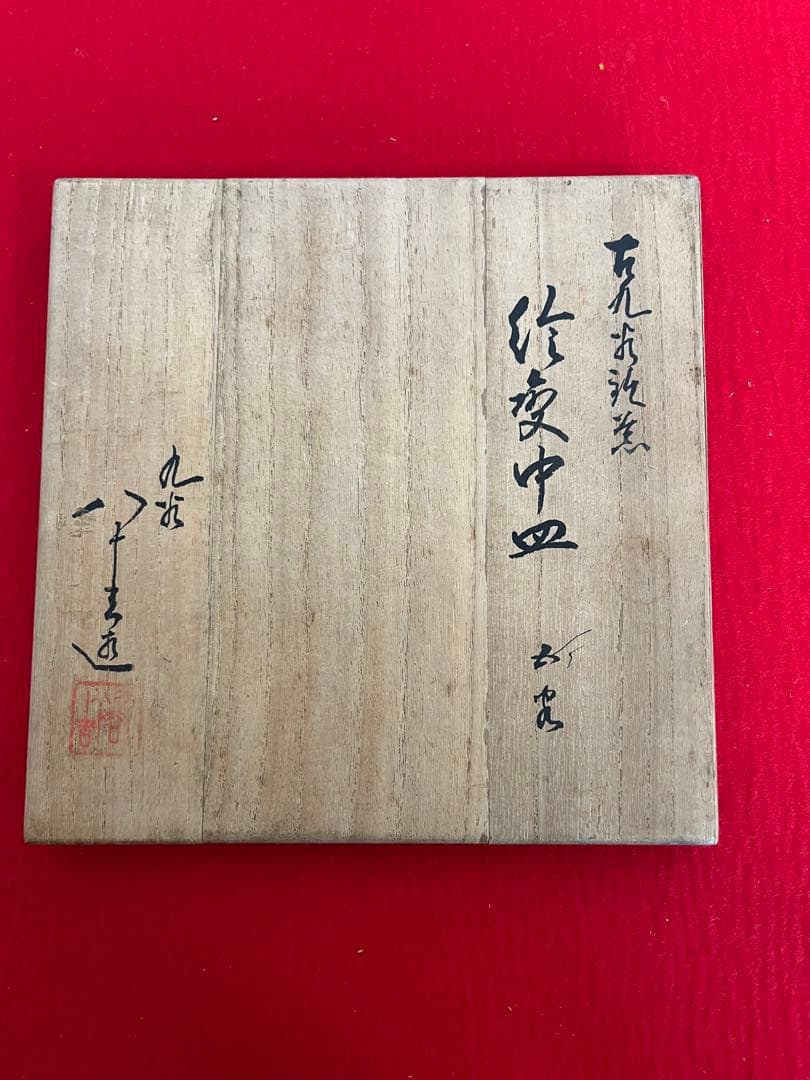 古九谷欽慕
絵変中皿
五客
九谷
八十吉造